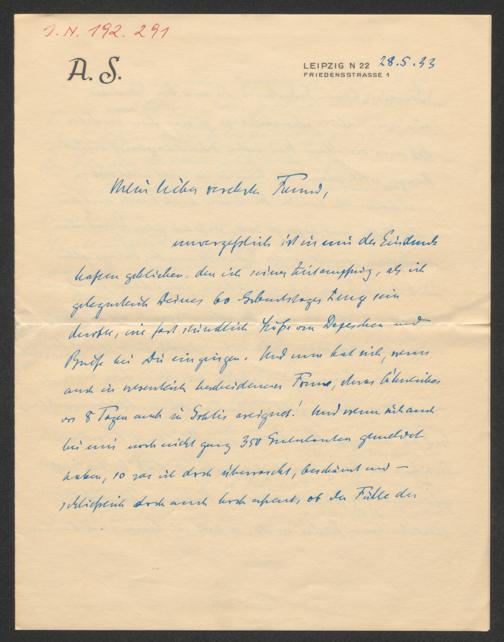 J.N. 192.291
A. S.
LEIPZIG N 22 28.5.33
FRIEDENSSTRASSE 1
Mein lieber verehrter Freund,
unvergeßlich ist in mir der Eindruck
haften geblieben, den ich seinerzeit empfing, als ich
gelegentlich Deines 60. Geburtstages Zeuge sein
durfte, wie fast stündlich Stöße von Depeschen und
Briefe bei Dir eingingen. Und nun hat sich, wenn
auch in wesentlich bescheidenerer Form, etwas Ähnliches
vor 8 Tagen auch in Gohlis ereignet! Und wenn sich auch
bei mir noch nicht ganz 350 Gratulanten gemeldet
haben, so war ich doch überrascht, beschämt und —
schließlich doch auch hocherfreut, ob der Fülle der